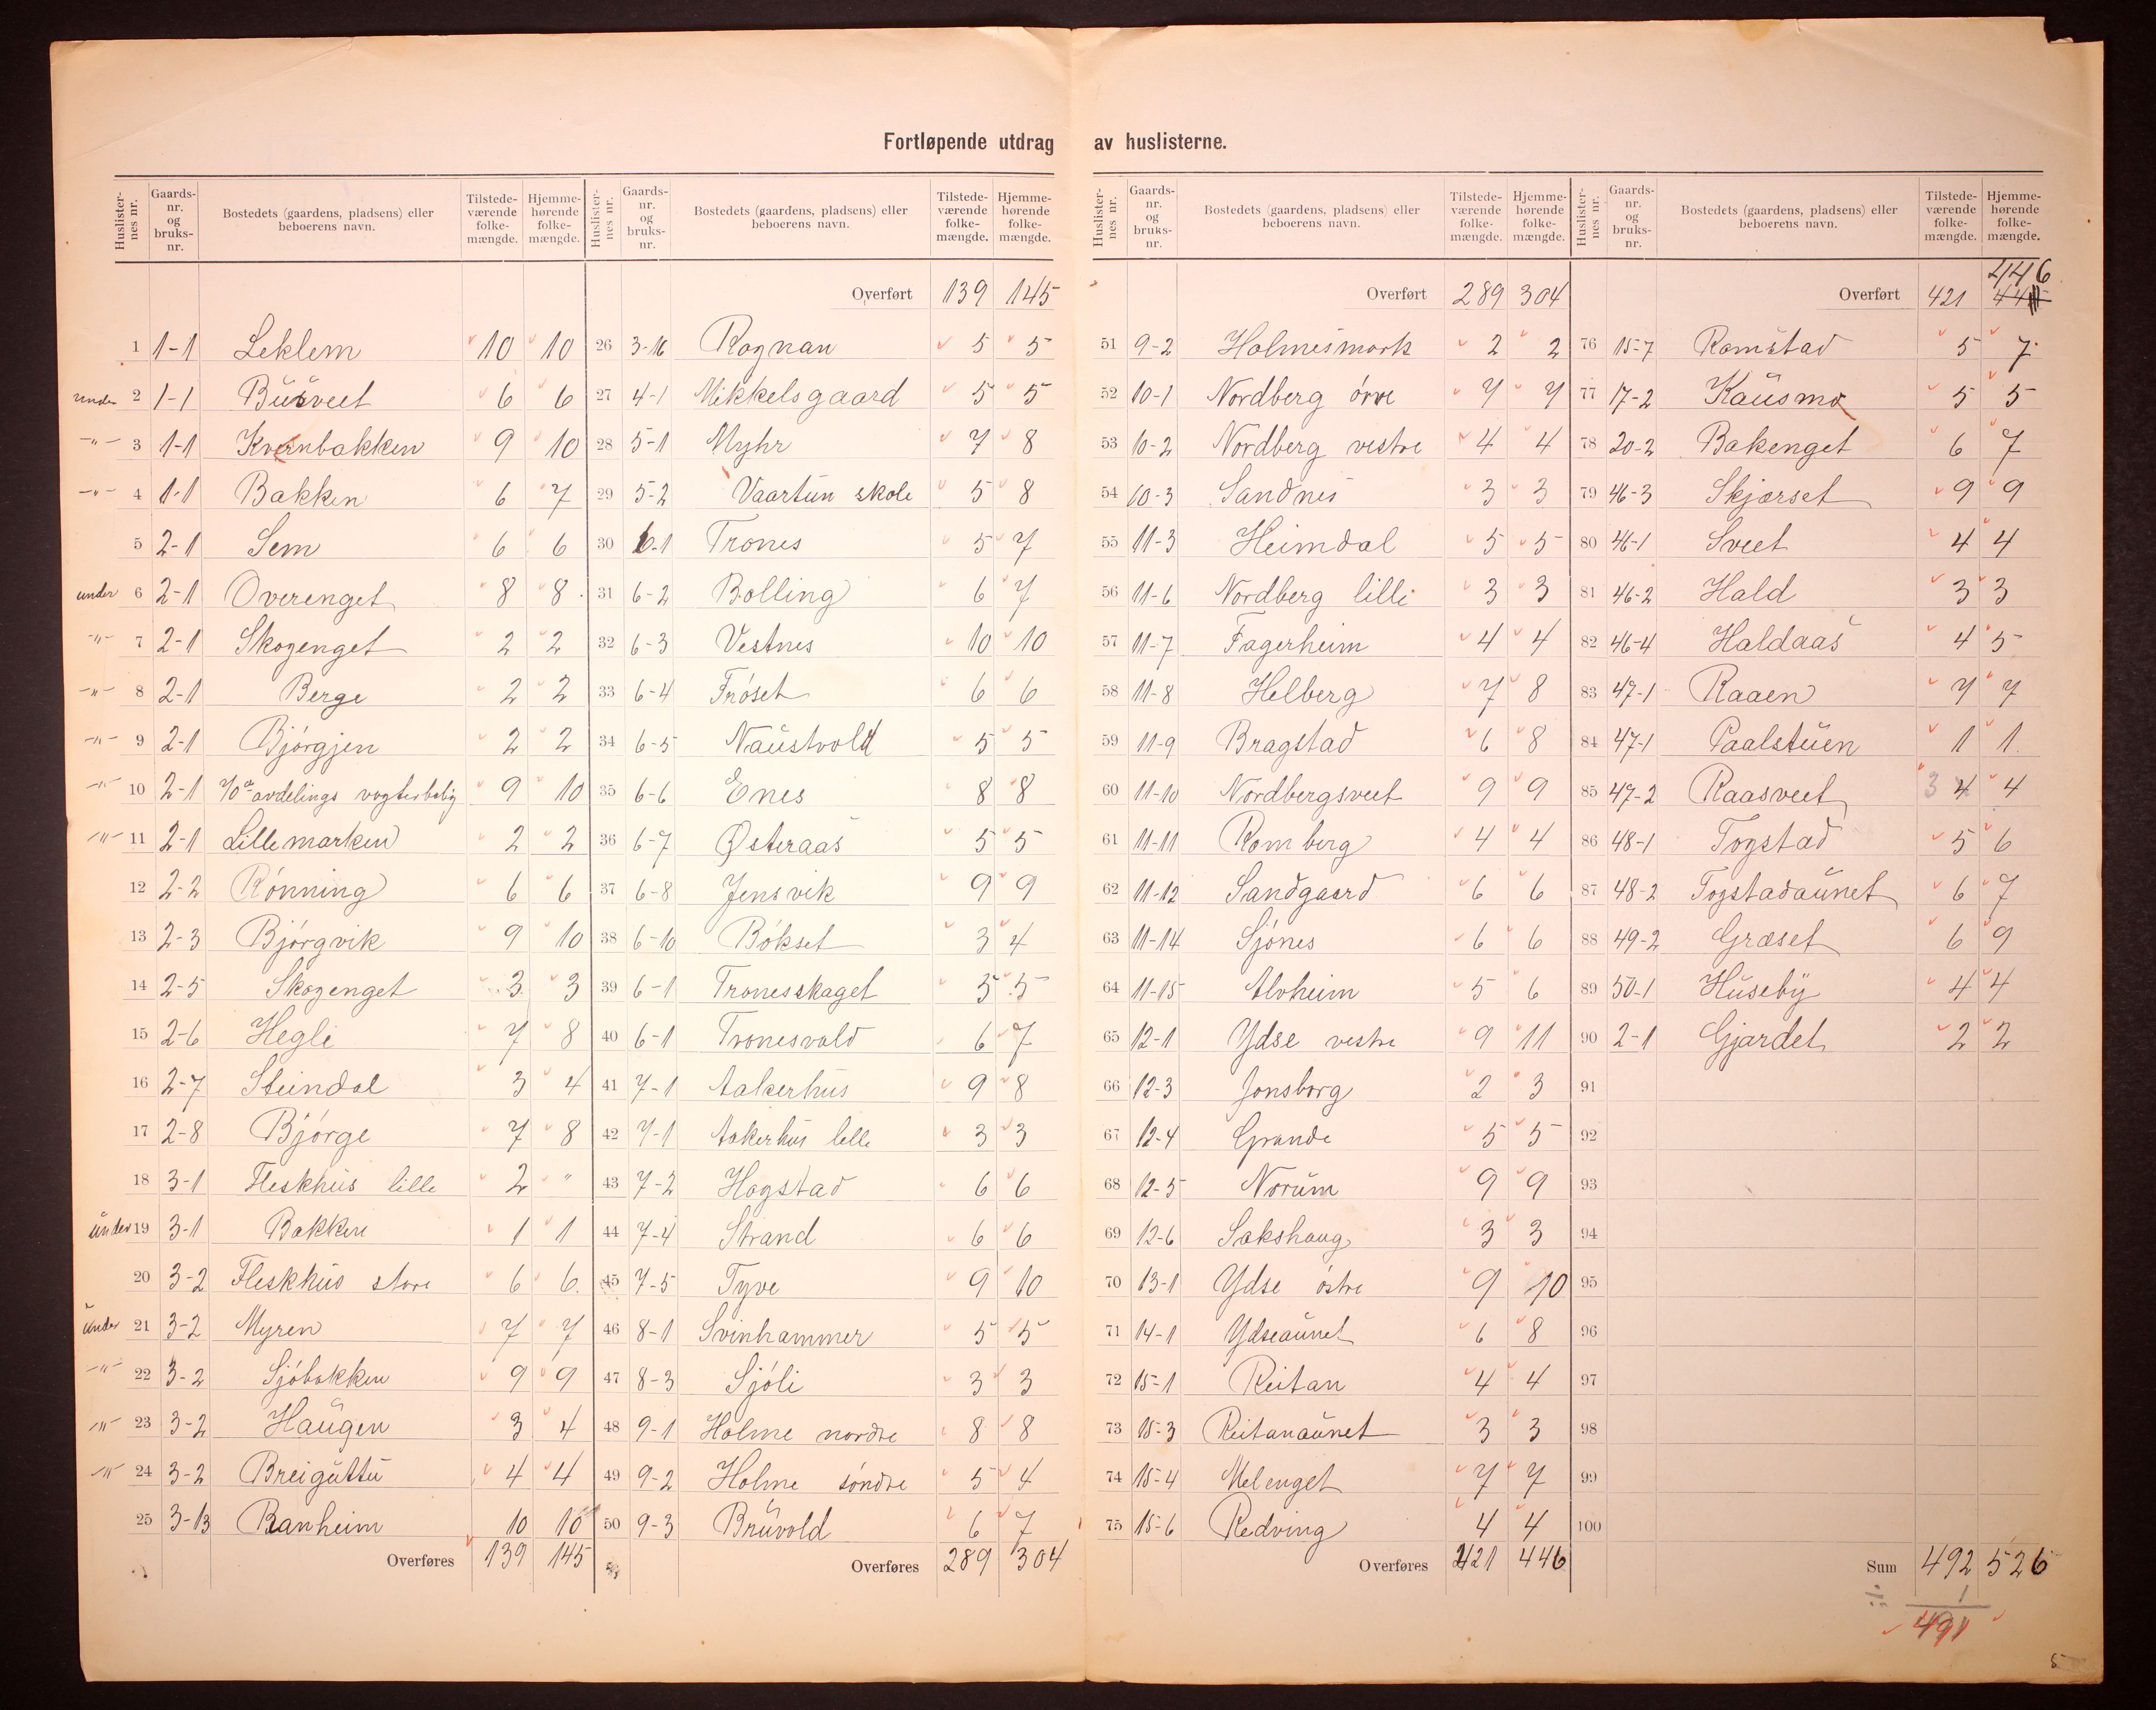 Fortløpende utdrag av huslisterne.
Huslister-nes nr. Gaards-nr. og bruks-nr. Bostedets (gaardens, pladsens) eller beboerens navn. Tilstede-værende folke-mængde. Hjemme-hørende folke-mængde.
1 1-1 Leklem 10 10
under 2 1-1 Büsveet 6 6
-"- 3 1-1 Kvernbakken 9 10
-"- 4 1-1 Bakken 6 7
5 2-1 Sem 6 6
under 6 2-1 Overenget 8 8
-"- 7 2-1 Skogenget 2 2
-"- 8 2-1 Berge 2 2
-"- 9 2-1 Bjórgjen 2 2
-"- 10 2-1 avdelings vogterbolig 9 10
-"- 11 2-1 Lillemarken 2 2
12 2-2 Rónning 6 6
13 2-3 Bjórgvik 9 10
14 2-5 Skogenget 3 3
15 2-6 Hegli 7 8
16 2-7 Steindal 3 4
17 2-8 Bjórge 7 8
18 3-1 Fleskhüs lille 2 "
ünder 19 3-1 Bakken 1 1
20 3-2 Fleskhüs store 6 6
ünder 21 3-2 Myren 7 7
-"- 22 3-2 Sjóbakken 9 9
-"- 23 3-2 Haügen 3 4
-"- 24 3-2 Breigüttü 4 4
25 3-13 Ranheim 10 10
Overføres 139 145
Huslister-nes nr. Gaards-nr. og bruks-nr. Bostedets (gaardens, pladsens) eller beboerens navn. Tilstede-værende folke-mængde. Hjemme-hørende folke-mængde.
Overført 139 145
26 3-16 Rognan 5 5
27 4-1 Mikkelsgaard 5 5
28 5-1 Myhr 7 8
29 5-2 Vaartün skole 5 8
30 6-1 Trones 5 7
31 6-2 Bolling 6 7
32 6-3 Vestnes 10 10
33 6-4 Fróset 6 6
34 6-5 Naüstvold 5 5
35 6-6 Enes 8 8
36 6-7 Østeraas 5 5
37 6-8 Jensvik 9 9
38 6-10 Bókset 3 4
39 6-1 Tronesskaget 5 5
40 6-1 Tronesvold 6 7
41 7-1 Aakerhüs 9 8
42 7-1 Aakerhüs lille 3 3
43 7-2 Hogstad 6 6
44 7-4 Strand 6 6
45 7-5 Tyve 9 10
46 8-1 Svinhammer 5 5
47 8-3 Sjóli 3 3
48 9-1 Holme nordre 8 8
49 9-2 Holme sóndre 5 4
50 9-3 Brüvold 6 7
Overføres 289 304
Huslister-nes nr. Gaards-nr. og bruks-nr. Bostedets (gaardens, pladsens) eller beboerens navn. Tilstede-værende folke-mængde. Hjemme-hørende folke-mængde.
Overført 289 304
51 9-2 Holmesmark 2 2
52 10-1 Nordberg óvre 7 7
53 10-2 Nordberg vestre 4 4
54 10-3 Sandnes 3 3
55 11-3 Heimdal 5 5
56 11-6 Nordberg lille 3 3
57 11-7 Fagerheim 4 4
58 11-8 Helberg 7 8
59 11-9 Bragstad 6 8
60 11-10 Nordbergsveet 9 9
61 11-11 Romberg 4 4
62 11-12 Sandgaard 6 6
63 11-14 Sjónes 6 6
64 11-15 Alvheim 5 6
65 12-1 Ydse vestre 9 11
66 12-3 Jonsborg 2 3
67 12-4 Grande 5 5
68 12-5 Norüm 9 9
69 12-6 Sakshaug 3 3
70 13-1 Ydse óstre 9 10
71 14-1 Ydseaünet 6 8
72 15-1 Reitan 4 4
73 15-3 Reitanaünet 3 3
74 15-4 Melenget 7 7
75 15-6 Redving 4 4
Overføres 421 446
Huslister-nes nr. Gaards-nr. og bruks-nr. Bostedets (gaardens, pladsens) eller beboerens navn. Tilstede-værende folke-mængde. Hjemme-hørende folke-mængde.
446
Overført 421
76 15-7 Ramstad 5 7
77 17-2 Kaüsmo 5 5
78 20-2 Bakenget 6 7
79 46-3 Skjærset 9 9
80 46-1 Sveet 4 4
81 46-2 Hald 3 3
82 46-4 Haldaas 4 5
83 47-1 Raaen 7 7
84 47-1 Paalstüen 1 1
85 47-2 Raasveet 3 4 4
86 48-1 Togstad 5 6
87 48-2 Togstadaünet 6 7
88 49-2 Græset 6 9
89 50-1 Hüseby 4 4
90 2-1 Gjærdet 2 2
91
92
93
94
95
96
97
98
99
100
Sum 492 526
1
491